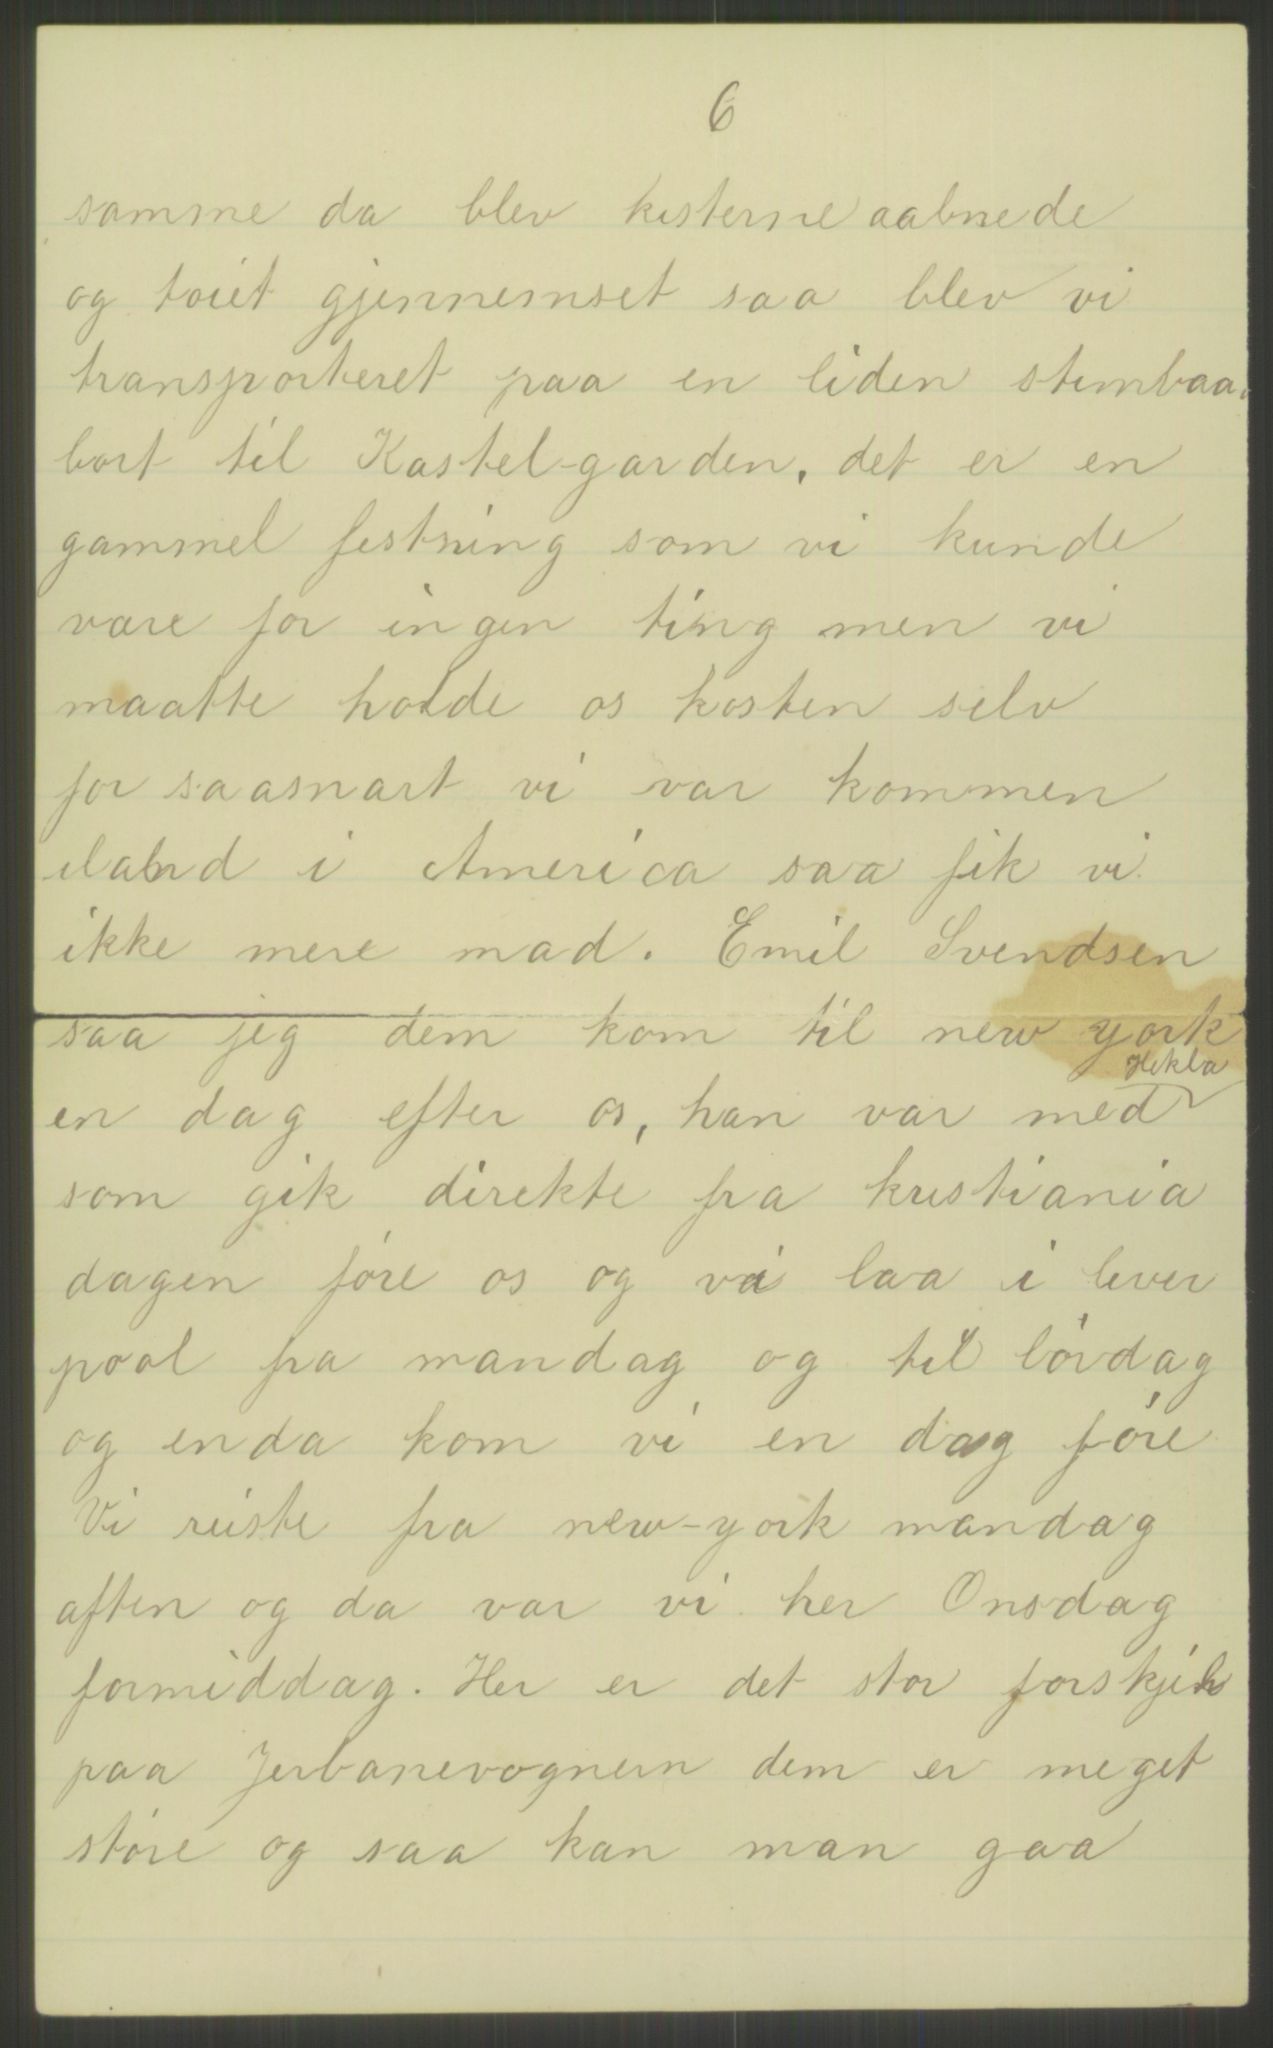 6
samme da blev kisterne aabnede
og töiet gjennemset saa blev vi
transporteret paa en liden stembaa
bort til Kastel-garden, det er en
gammel festning som vi kunde
være for ingen ting men vi
maatte holde os kosten selv
for saasnart vi var kommen
iland i America saa fik vi
ikke mere mad. Emil Svendsen
saa jeg dem kom til new york
Hekla
en dag efter os, han var med
som gik direkte fra kristiania
dagen före os og vi laa i liver
pool fra mandag og til lördag
og enda kom vi en dag före
Vi reiste fra new-york mandag
aften og da var vi her Onsdag
formiddag. Her er det stor
paa Jerbanevognern dem er meget
störe og saa kan man gaa